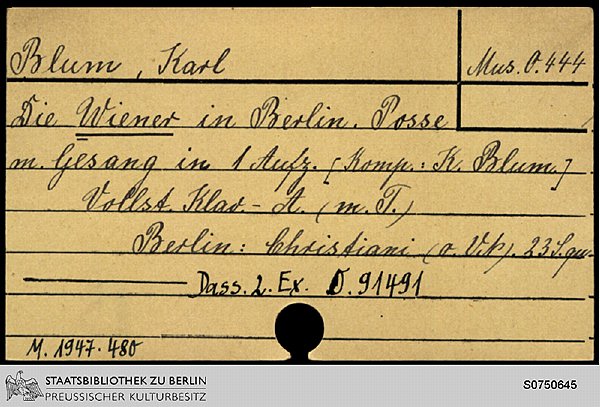 Blum, Karl
Mus. O. 444
Die Wiener in Berlin. Posse
m. Gesang in 1 Aufz. [Komp.: K. Blum.]
Vollst. Klav.-A. (m. T.)
Berlin: Christiani (o. V.) 23 S. qu-
Dass. 2. Ex. O. 91491
M. 1947. 480
STAATSBIBLIOTHEK ZU BERLIN
PREUSSISCHER KULTURBESITZ
S0750645